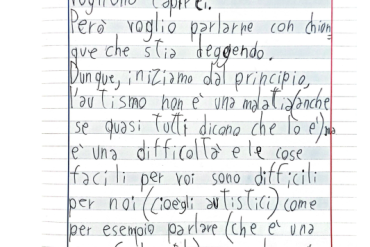 vogliono capirci.
Però voglio parlarne con chiun
que che stia leggendo.
Dunque, iniziamo dal principio,
l'autismo non è una malatia(anche
se quasi tutti dicono che lo è)ma
è una difficoltà e le cose
facili per voi sono difficili
per noi (cioègli autistici) come
per esempio parlare (che è una